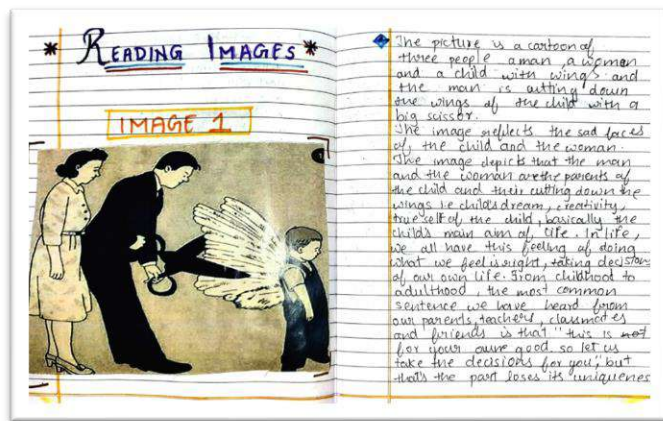 * READING IMAGES *
IMAGE 1
The picture is a cartoon of
three people a man, a women
and a child with wings and
the man is cutting down
the wings of the child with a
big scissor.
The image reflects the sad faces
of, the child and the woman.
The image depicts that the man
and the woman are the parents of
the child and their cutting down the
wings i.e child's dream, creativity,
true self of the child, basically the
childs main aim of life. In life,
we all have this feeling of doing
what we feel is right, taking decision
of our own life. From childhood to
adulthood, the most common
sentence we have heard from
our parents, teachers, classmates
and friends is that "this is not
for your own good. so let us
take the decisions for you," but
that's the part loses its uniquenes